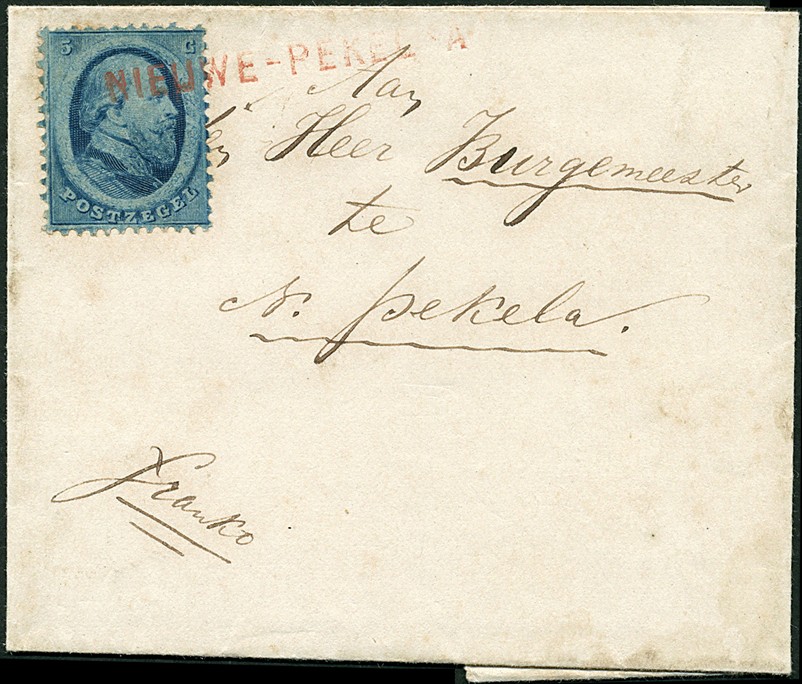 5 C
POSTZEGEL
NIEUWE-PEKEL A
Aan
den Heer Burgemeester
te
N. Pekela.
Franko